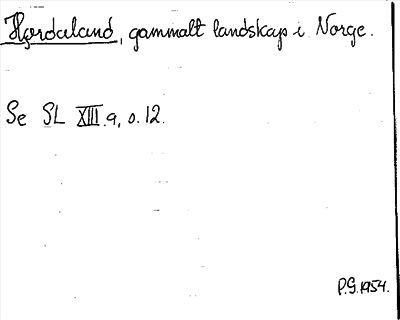 Hordaland, gammalt landskap i Norge.
Se SL XIII.9, s.12.
P.G.1954.